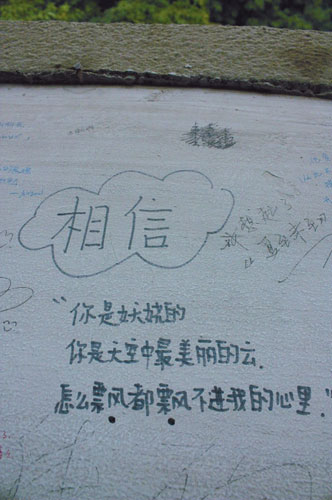 相信
"你是妖娆的
你是天空中最美丽的云.
怎么飘都飘不进我的心里."